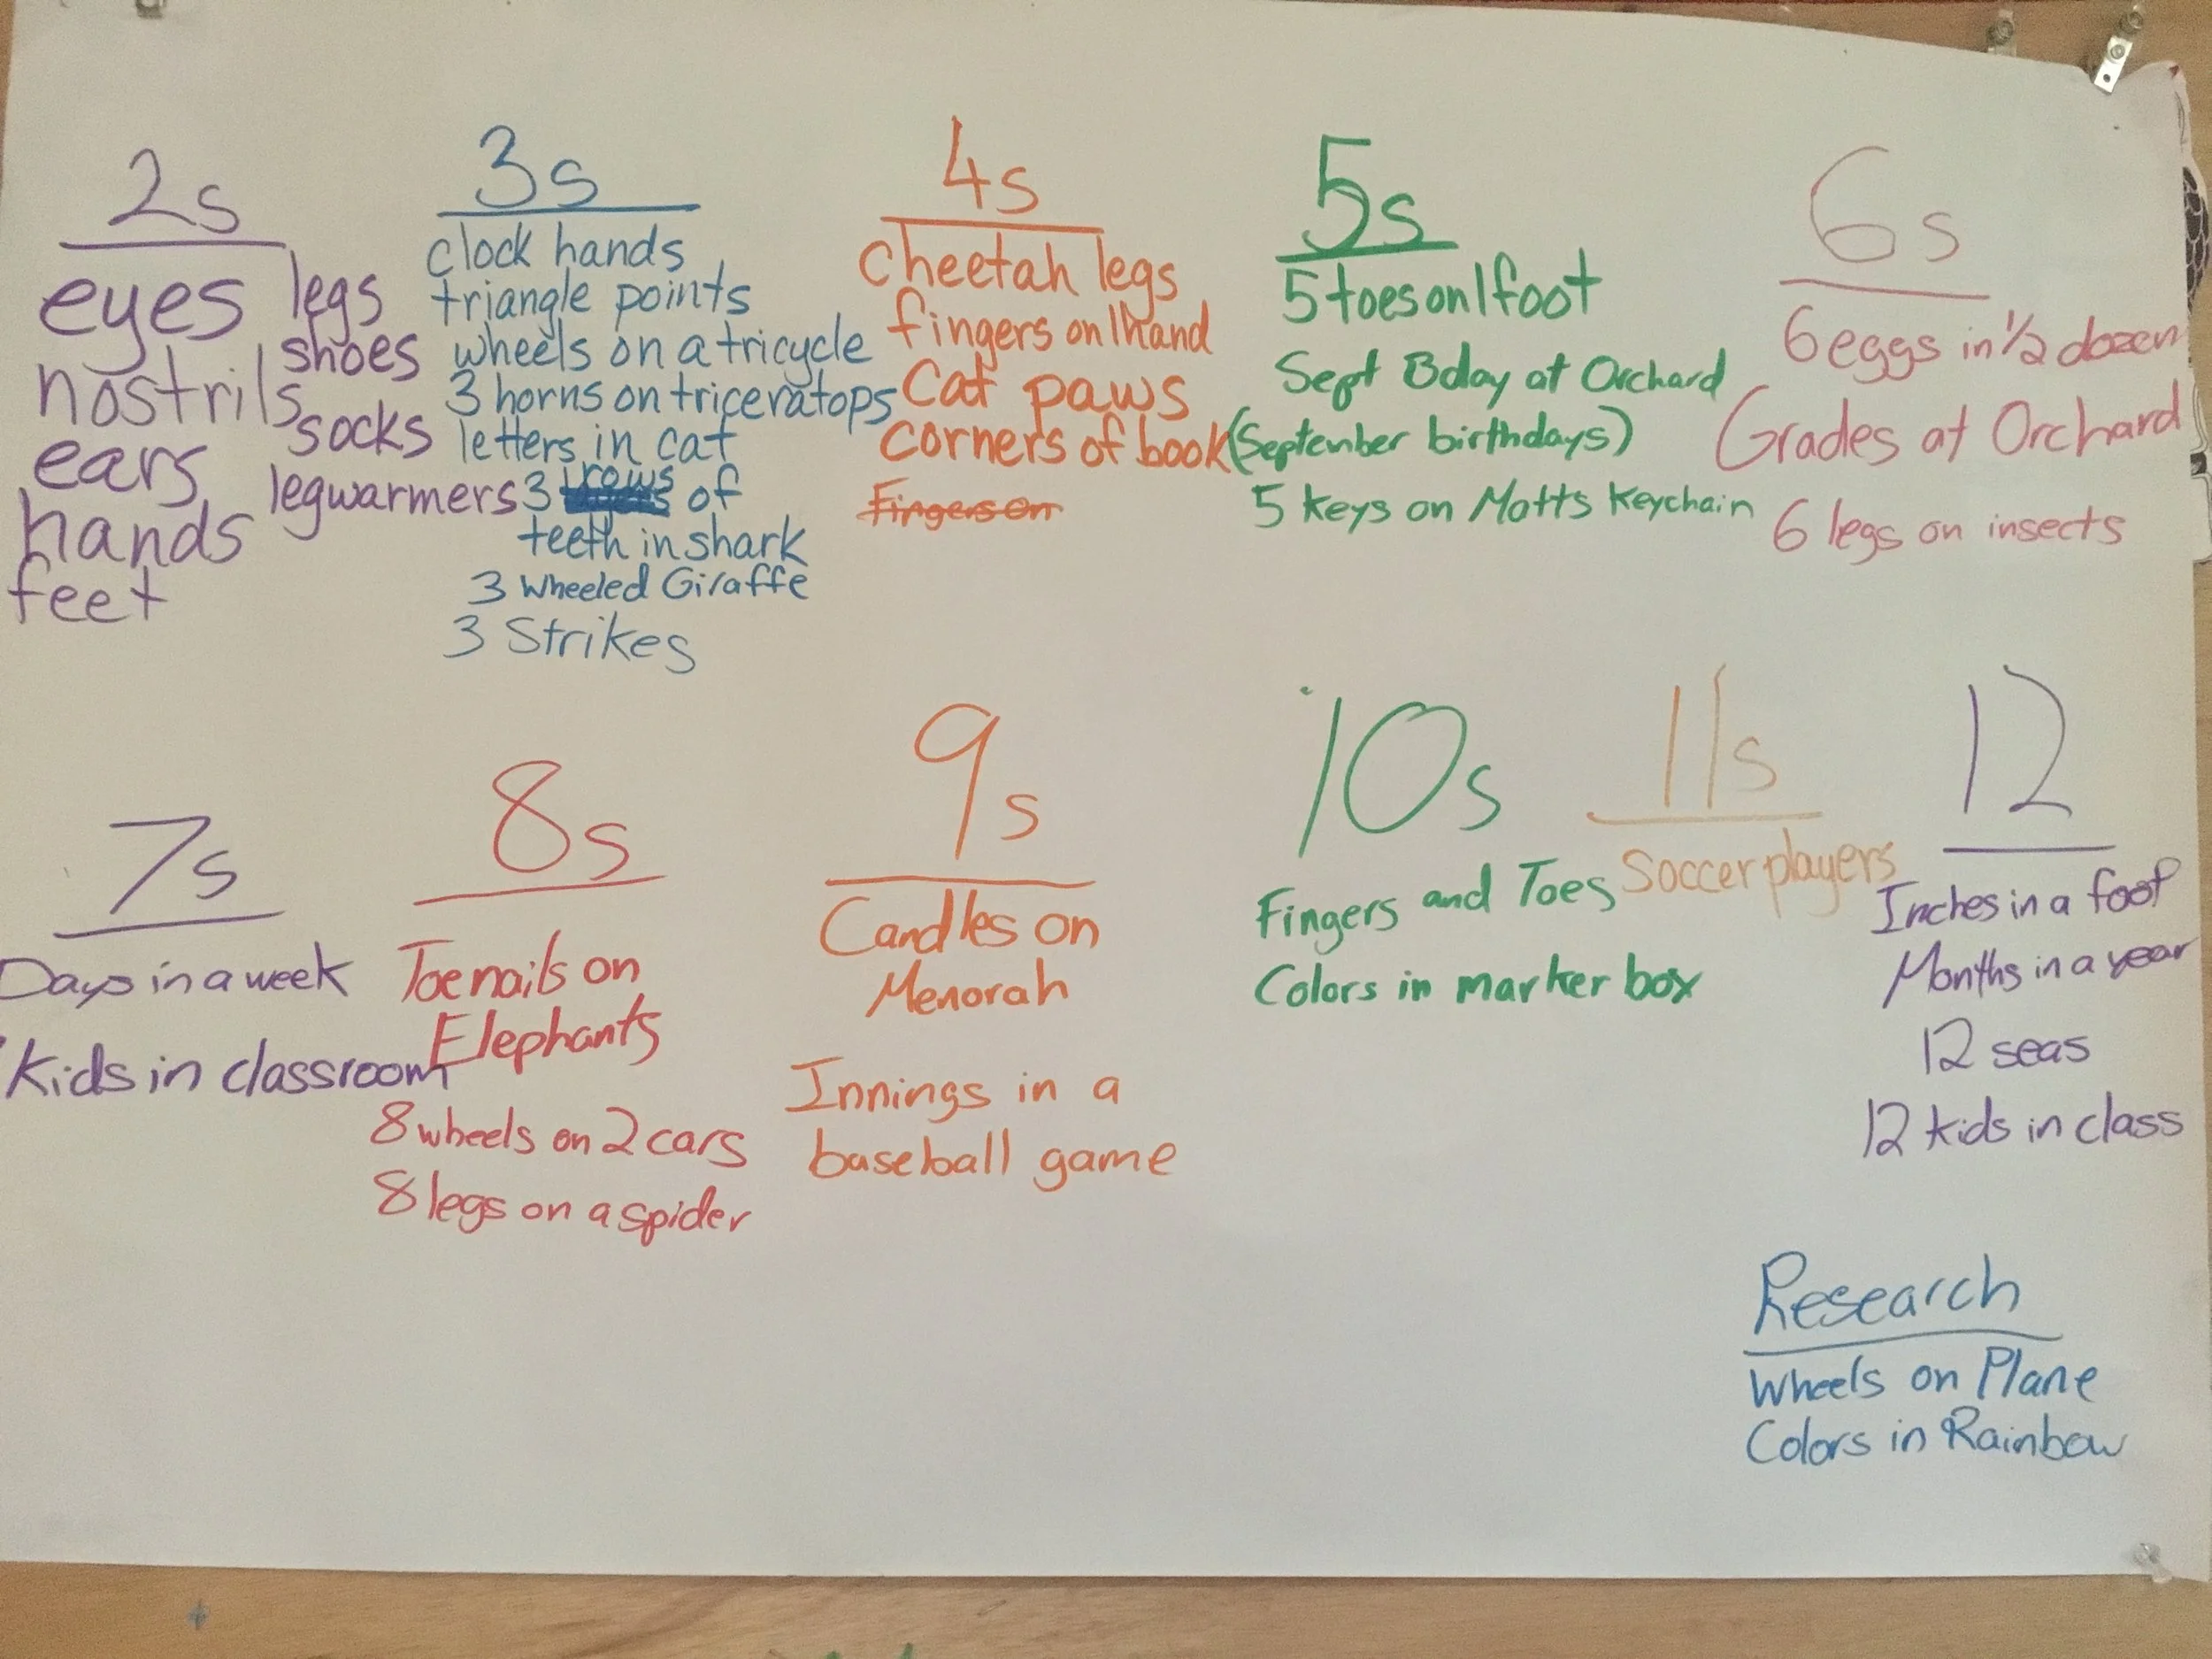 2s
eyes
nostrils
ears
hands
feet
legs
shoes
socks
legwarmers
3s
clock hands
triangle points
wheels on a tricycle
3 horns on triceratops
letters in cat
3 rows of
teeth in shark
3 Wheeled Giraffe
3 Strikes
4s
Cheetah legs
fingers on 1 hand
Cat paws
corners of book
Fingers on
5s
5 toes on 1 foot
Sept Bday at Orchard
(September birthdays)
5 keys on Matts Keychain
6s
6 eggs in 1/2 dozen
Grades at Orchard
6 legs on insects
7s
Days in a week
Kids in classroom
8s
Toenails on
Elephants
8 wheels on 2 cars
8 legs on a spider
9s
Candles on
Menorah
Innings in a
baseball game
10s
Fingers and Toes
Colors in marker box
11s
Soccer players
12
Inches in a foot
Months in a year
12 seas
12 kids in class
Research
Wheels on Plane
Colors in Rainbow